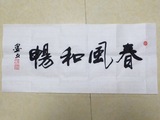 春風和暢